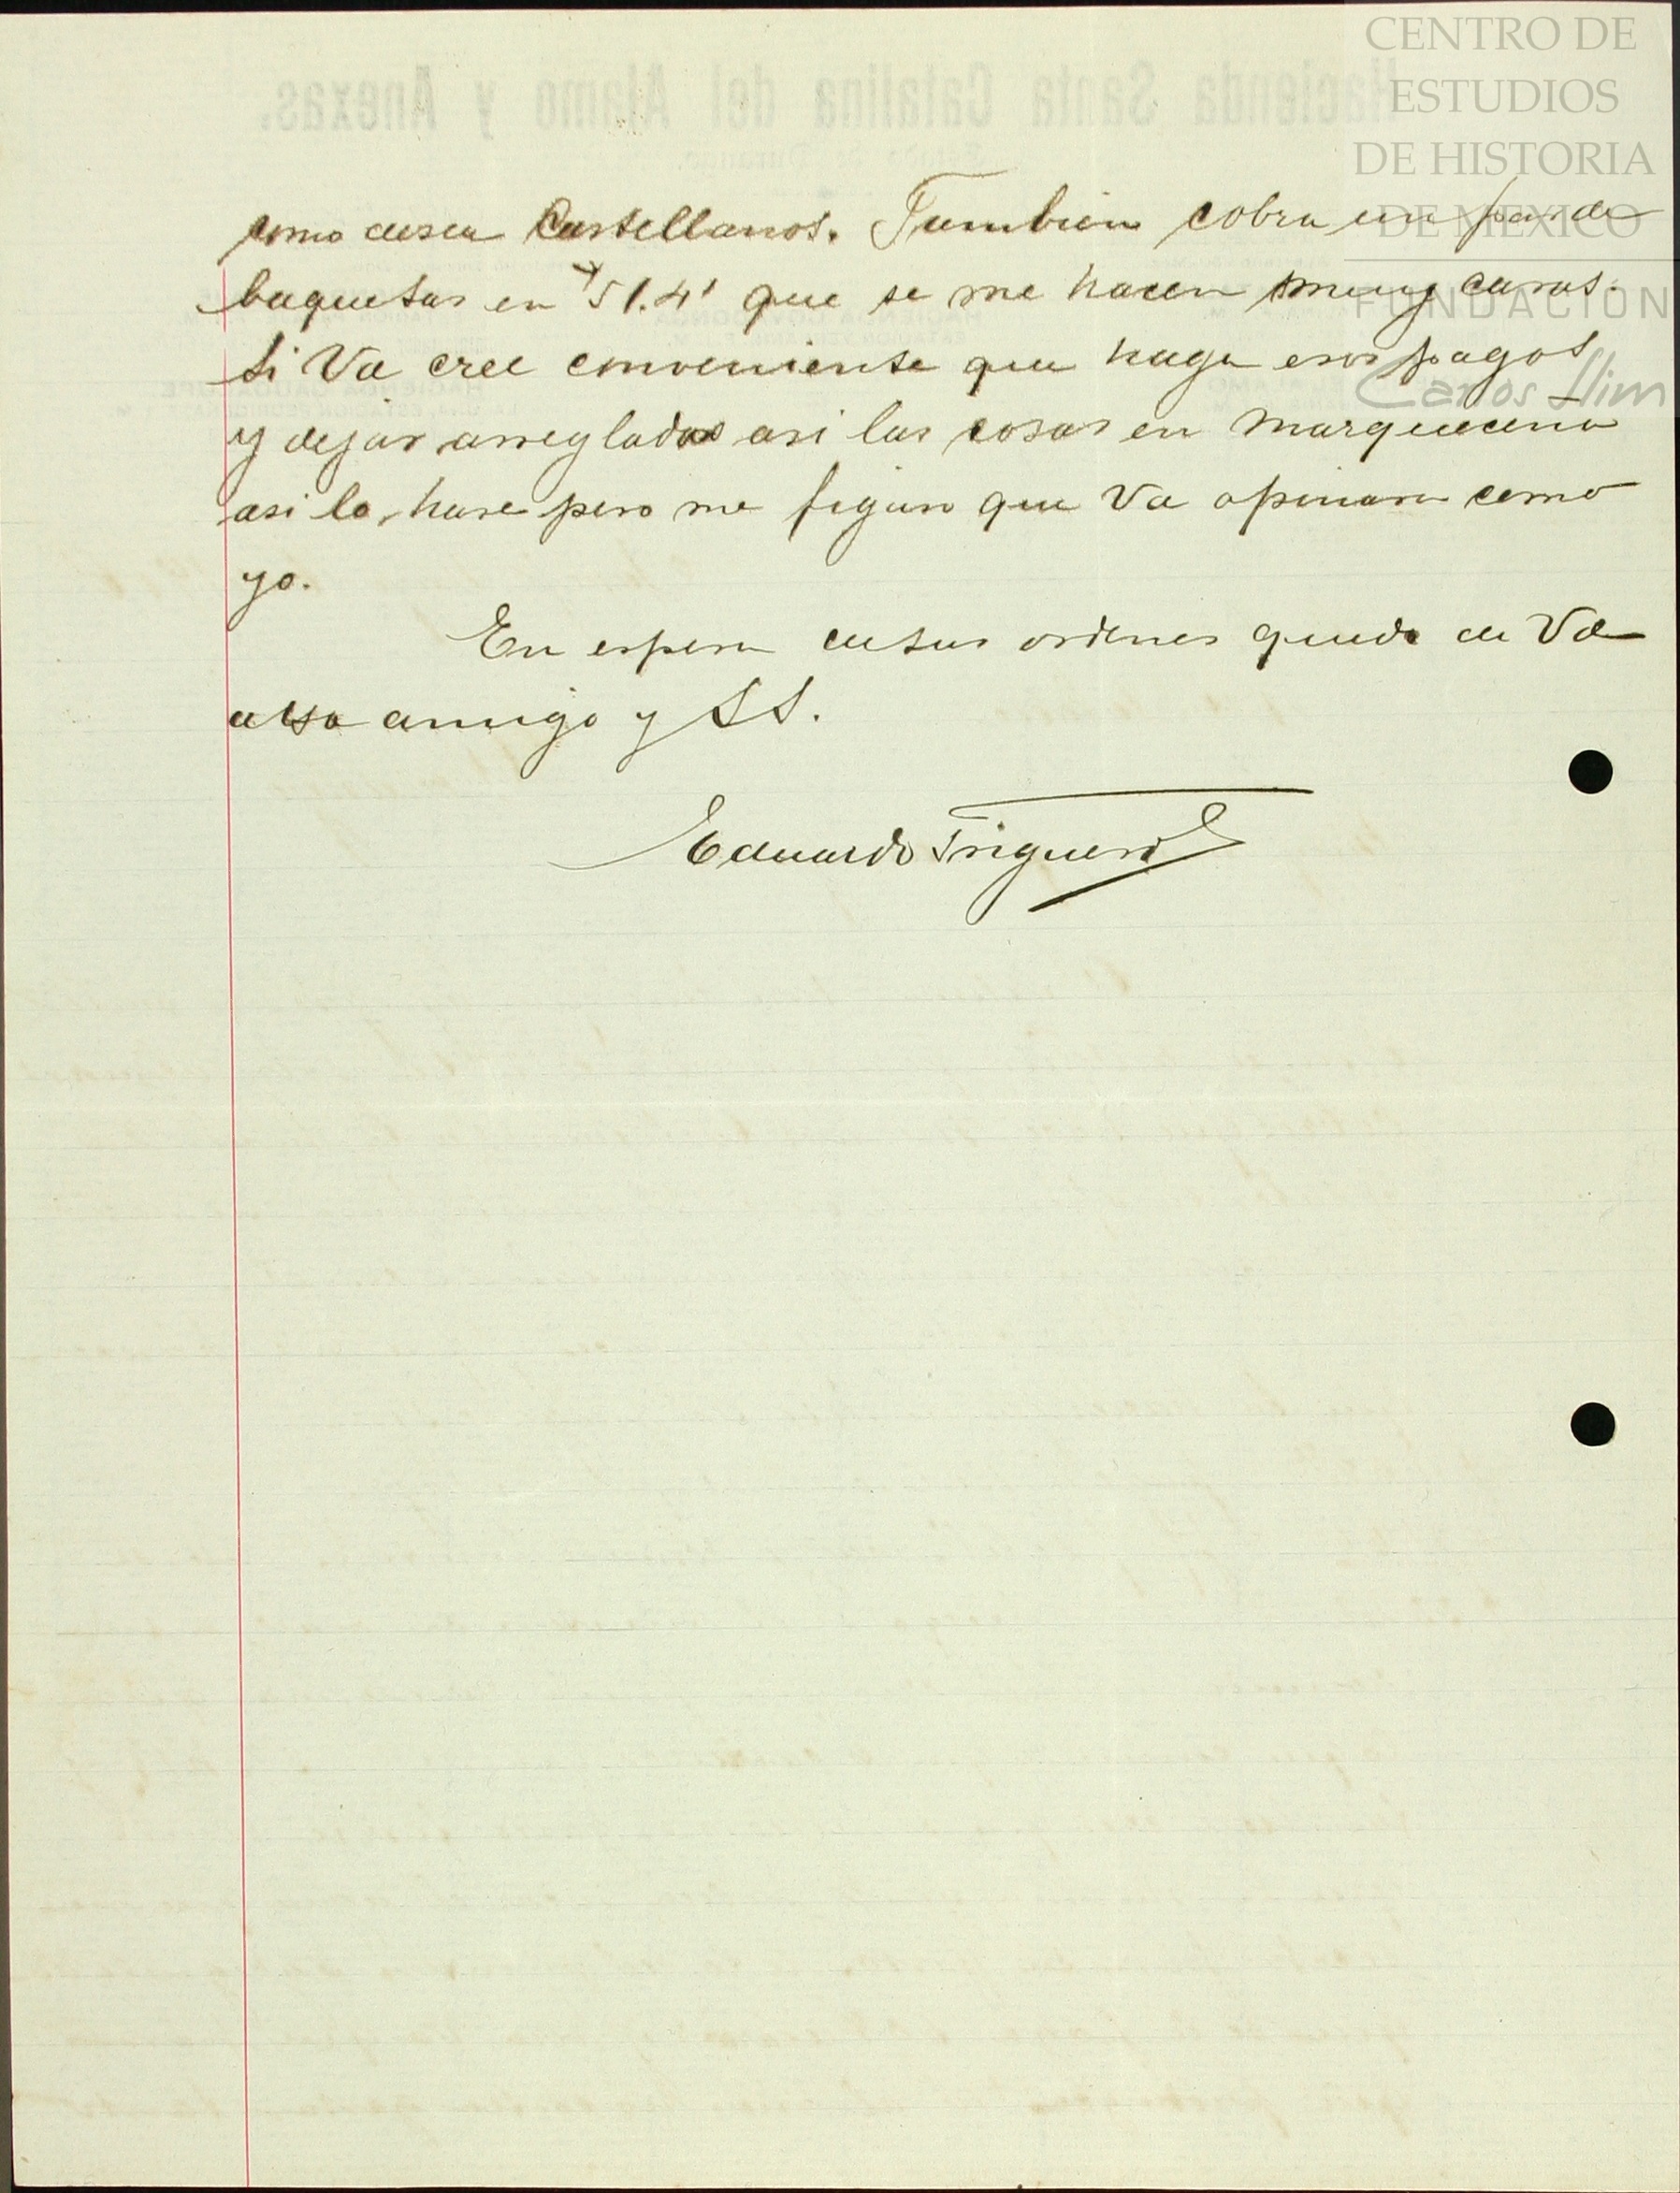 CENTRO DE
ESTUDIOS
DE HISTORIA
DE MEXICO
FUNDACION
Carlos Slim
Hacienda Santa Catalina del Alamo y Anexas.
como desea Castellanos. Tambien cobra un par de
baquetas en $ 1.41 que se me hacen muy caras.
Si Vd cree conveniente que haga esos pagos
y dejar arregladas asi las cosas en
asi lo hare pero me figuro que Vd opinara como
yo.
En espera de sus ordenes quedo de Vd
atto amigo y SS.
Eduardo Trigueros